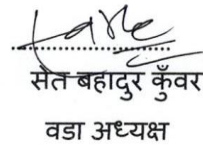 सेत बहादुर कुँवर
वडा अध्यक्ष